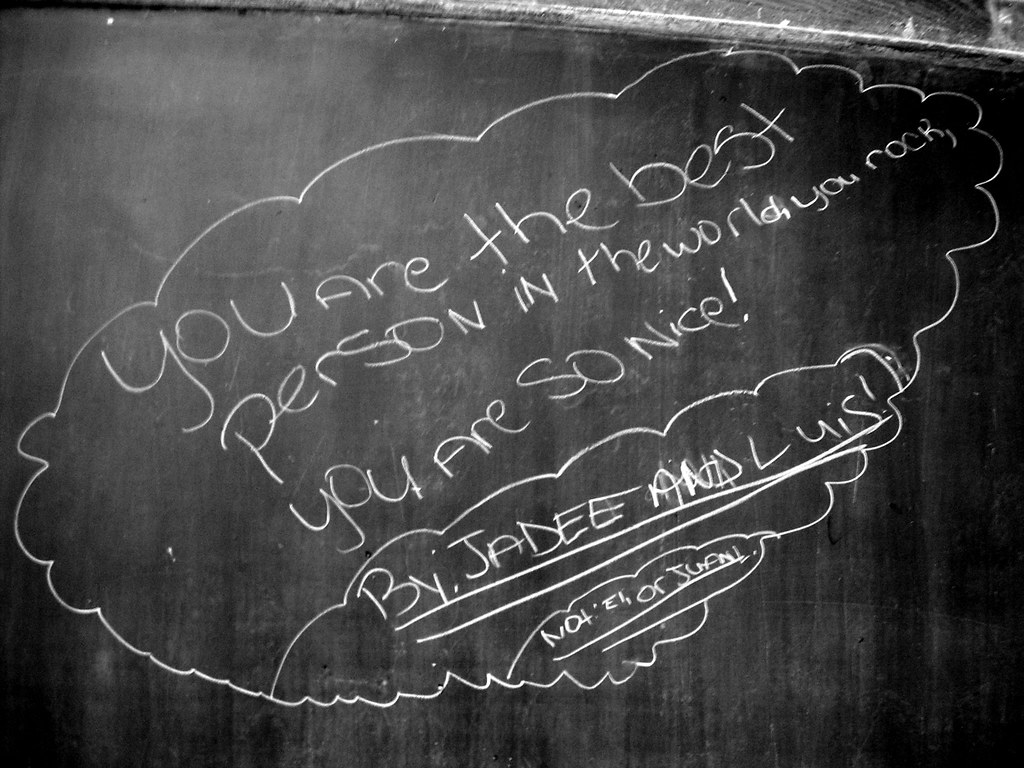 you are the best
person in the world, you rock,
you are so nice!
By: JADEE AND Luis!
Not: Eli or JUAN!